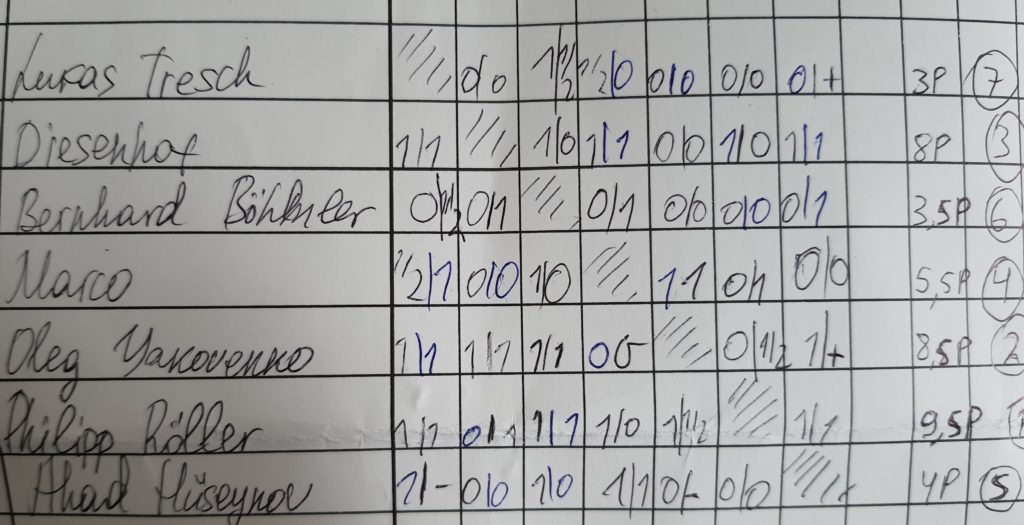 Lukas Tresch 0/0 1/1/2 1/2/0 0/0 0/0 0/+ 3P 7
Diesenhof 1/1 1/0 1/1 0/0 1/0 1/1 8P 3
Bernhard 0/1/2 0/1 0/1 0/0 0/0 0/1 3,5P 6
Marco 1/2/1 0/0 1/0 1 1 0/1 0/0 5,5P 4
Oleg Yakovenko 1/1 1/1 1/1 0 0 0/1/2 1/+ 8,5P 2
Philipp Röller 1/1 0/1 1/1 1/0 1/1/2 1/1 9,5P 1
Ahad Hüseynov 1/- 0/0 1/0 1/1 0/- 0/0 4P 5